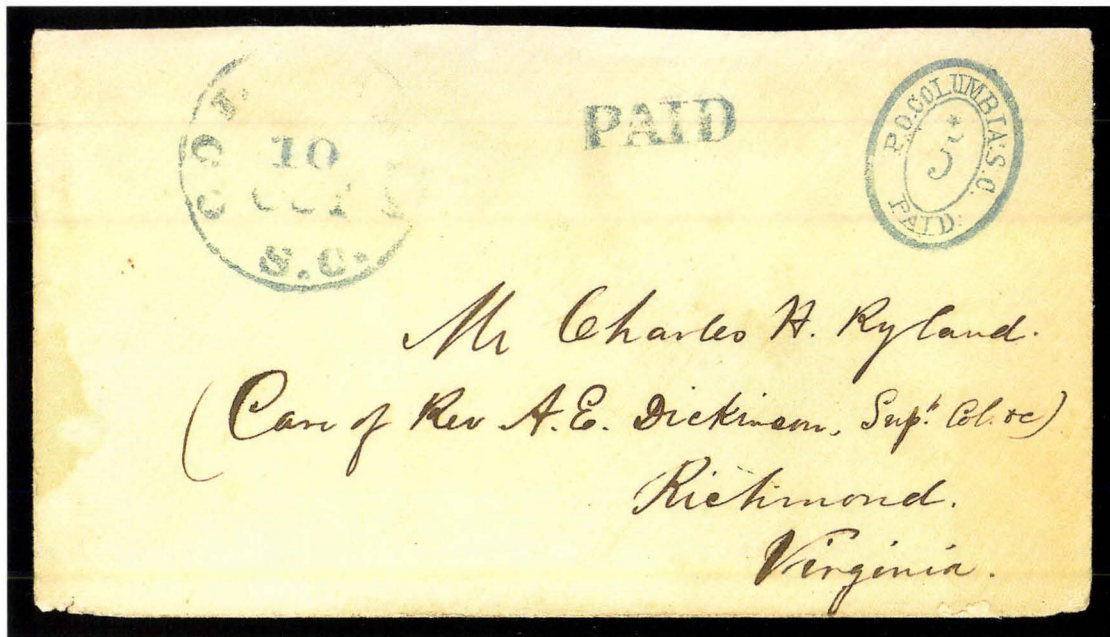 COL
10
OCT
S.C.
PAID
P.O. COLUMBIA. S.C.
5
PAID.
Mr Charles H. Ryland.
(Care of Rev A.E. Dickinson, Supt. Col. &c)
Richmond.
Virginia.